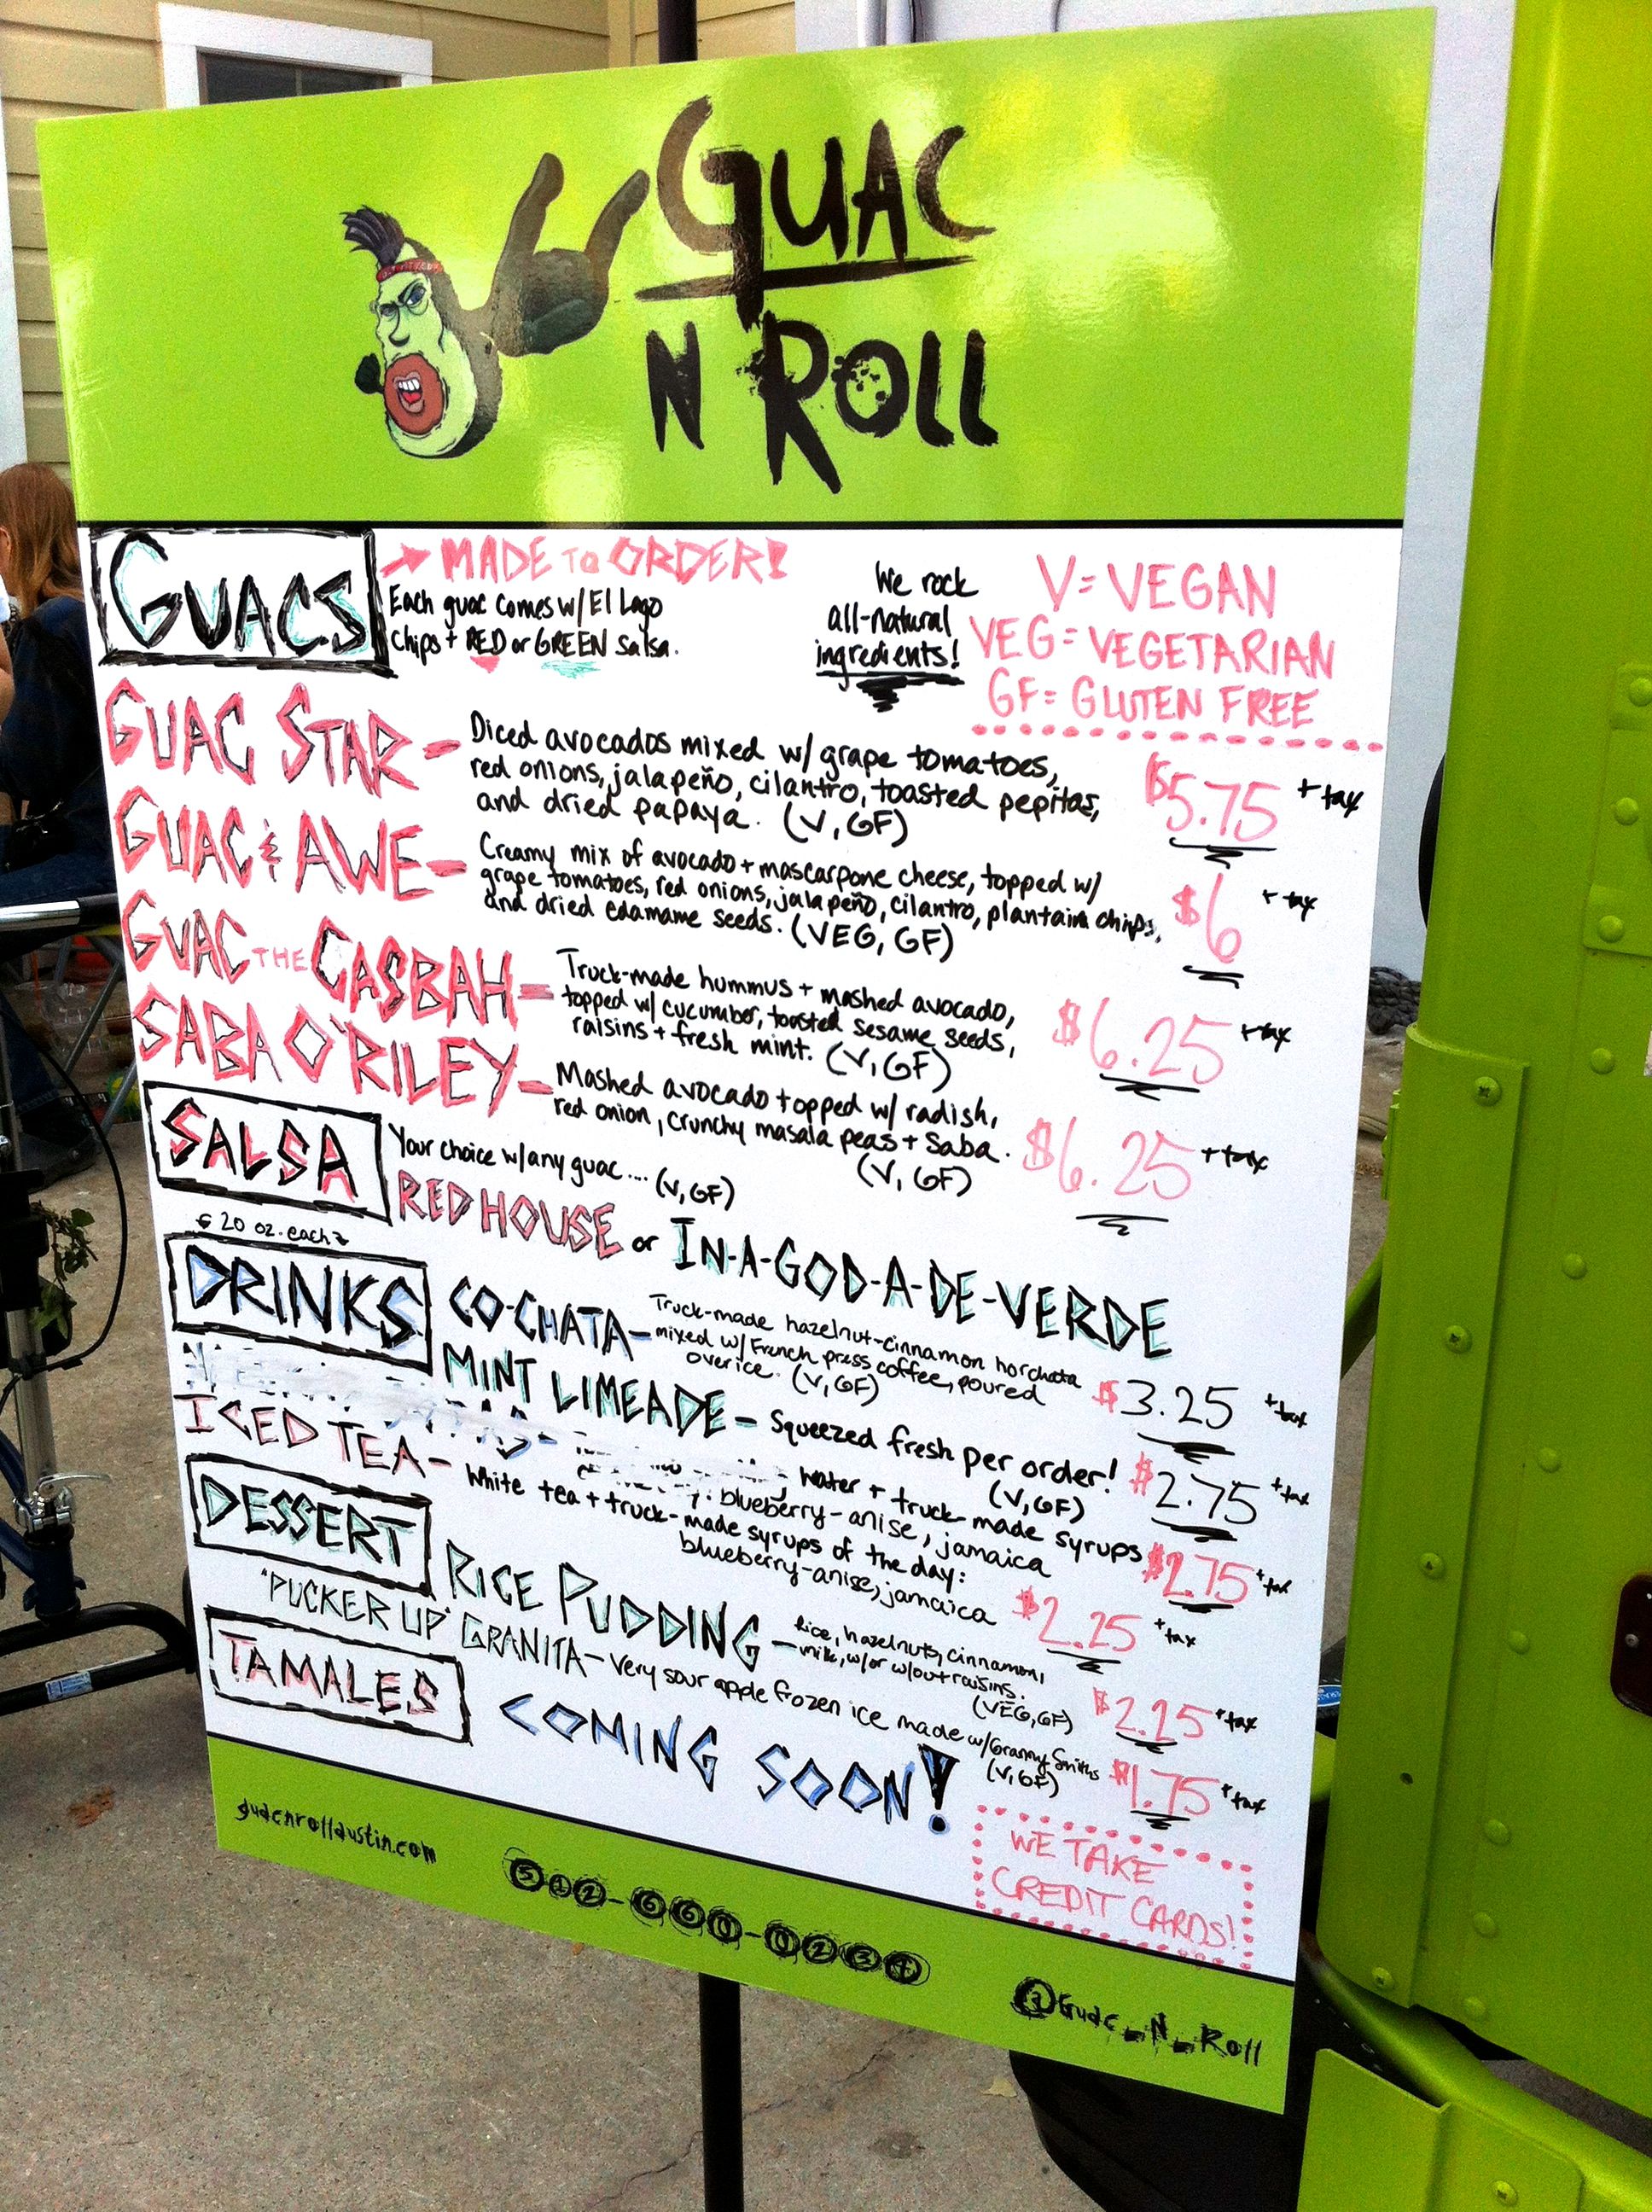 GUAC
N ROLL
GUACS
→ MADE TO ORDER!
Each guac comes w/ El Lago
Chips + RED or GREEN salsa.
We rock
all-natural
ingredients!
V = VEGAN
VEG = VEGETARIAN
GF = GLUTEN FREE
GUAC STAR -
Diced avocados mixed w/ grape tomatoes,
red onions, jalapeño, cilantro, toasted pepitas,
and dried papaya. (V, GF)
$5.75 + tax
GUAC & AWE -
Creamy mix of avocado + mascarpone cheese, topped w/
grape tomatoes, red onions, jalapeño, cilantro, plantain chips,
and dried edamame seeds. (VEG, GF)
$6 + tax
GUAC THE CASBAH -
Truck-made hummus + mashed avocado,
topped w/ cucumber, toasted sesame seeds,
raisins + fresh mint. (V, GF)
$6.25 + tax
SABA O'RILEY -
Mashed avocado topped w/ radish,
red onion, crunchy masala peas + Saba.
(V, GF)
$6.25 + tax
SALSA
Your choice w/ any guac.... (V, GF)
RED HOUSE or IN-A-GOD-A-DE-VERDE
20 oz. each
DRINKS
CO-CHATA -
Truck-made hazelnut-cinnamon horchata
mixed w/ French press coffee, poured
over ice. (V, GF)
$3.25 + tax
MINT LIMEADE - Squeezed fresh per order!
(V, GF)
$2.75 + tax
water + truck-made syrups
blueberry-anise, jamaica
$2.75 + tax
ICED TEA -
White tea + truck-made syrups of the day:
blueberry-anise, jamaica
$2.25 + tax
DESSERT
RICE PUDDING -
Rice, hazelnuts, cinnamon,
milk, w/ or w/out raisins.
(VEG, GF)
$2.25 + tax
"PUCKER UP" GRANITA - Very sour apple frozen ice made w/ Granny Smiths
(V, GF)
$1.75 + tax
TAMALES
COMING SOON!
WE TAKE
CREDIT CARDS!
guacnrollaustin.com
512-660-0234
@Guac_N_Roll